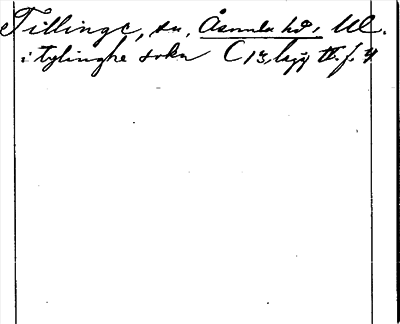 Tillinge, sn, Åsunda hd, Ul.
i tylinghe sokn C 13, lägg II. f. 4